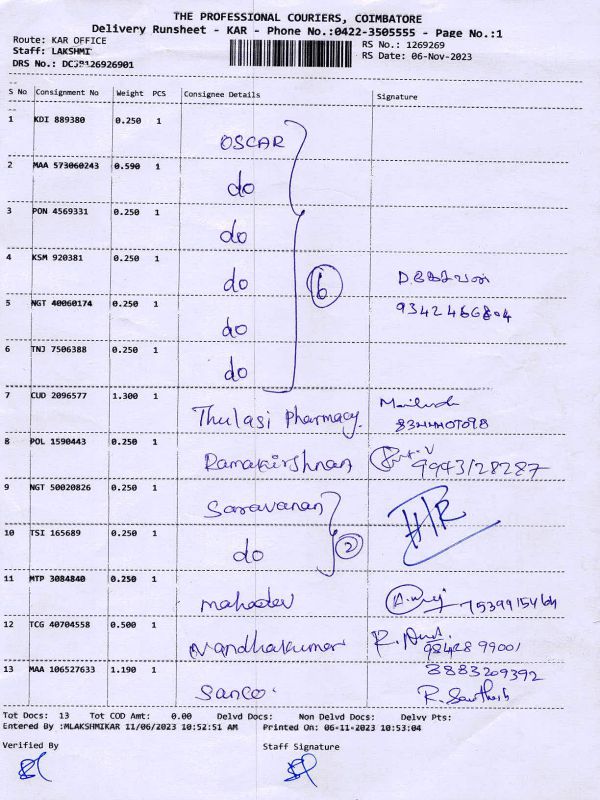 THE PROFESSIONAL COURIERS, COIMBATORE
Delivery Runsheet - KAR - Phone No.:0422-3505555 - Page No.:1
Route: KAR OFFICE
RS No.: 1269269
Staff: LAKSHMI
RS Date: 06-Nov-2023
DRS No.: DC3B126926901
S No Consignment No Weight PCS Consignee Details Signature
1 KDI 889380 0.250 1 OSCAR
2 MAA 573060243 0.590 1 do
3 PON 4569331 0.250 1 do
4 KSM 920381 0.250 1 do 6
5 NGT 40060174 0.250 1 do 9342466804
6 TNJ 7506388 0.250 1 do
7 CUD 2096577 1.300 1 Thulasi Pharmacy
8 POL 1590443 0.250 1 Ramakirshnan 9943128287
9 NGT 50020826 0.250 1 Saravanan
10 TSI 165689 0.250 1 do 2
11 MTP 3084840 0.250 1 mahadev 7539915464
12 TCG 40704558 0.500 1 Nandhakumar 98428 99001
13 MAA 106527633 1.190 1 Sanco 3883209392
Tot Docs: 13 Tot COD Amt: 0.00 Delvd Docs: Non Delvd Docs: Delvy Pts:
Entered By :MLAKSHMIKAR 11/06/2023 10:52:51 AM Printed On: 06-11-2023 10:53:04
Verified By Staff Signature